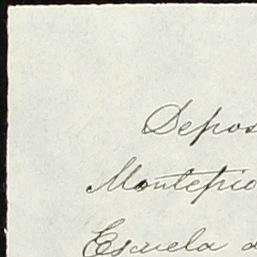 Depos
Montepio
Escuela d